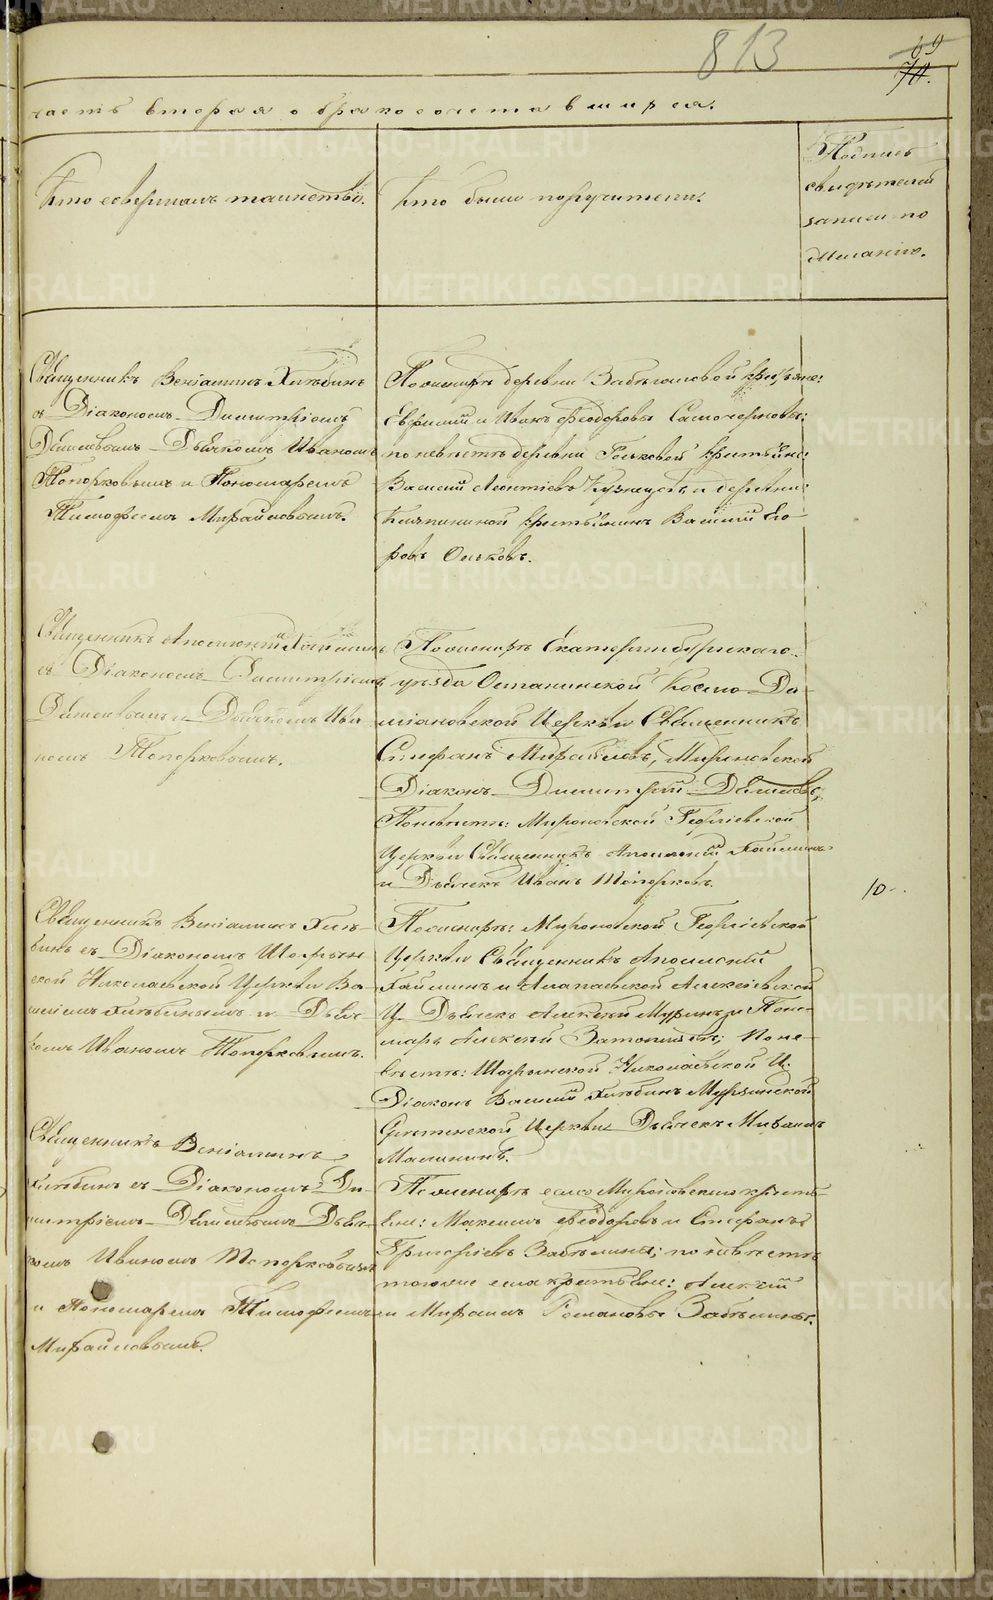 813
69
70.
часть вторая о бракосочетавшихся.
Кто совершалъ таинство.
Кто были поручители.
Подпись
свидѣтелей
записи по
желанію.
Священникъ Веніаминъ Хлѣбинъ
съ Діакономъ Димитріемъ
Дьячкомъ Иваномъ
Топорковымъ и Пономаремъ
Тимофеемъ Михайловымъ.
По женихѣ деревни Забѣгаловой крестьяне:
Евфимій и Иванъ Феодоровы Самочерновы;
по невѣстѣ деревни Гольковой крестьянинъ
Василій Леонтіевъ Кузнецовъ и деревни
крестьянинъ Василій Его
ровъ Ольковъ.
Священникъ Аполлоній
съ Діакономъ Димитріемъ
и Дьячкомъ Ива
номъ Топорковымъ.
По женихѣ Екатеринбургскаго
уѣзда Останинской Космо-Да
міановской Церкви Священникъ
Стефанъ Михайловъ, Мироновской
Діаконъ Димитрій
По невѣстѣ: Мироновской Георгіевской
Церкви Священникъ Аполлоній
и Дьячекъ Иванъ Топорковъ.
10.
Священникъ Веніаминъ Хлѣ
бинъ съ Діакономъ Шогрын
ской Николаевской Церкви Ва
силіемъ Хлѣбинымъ и Дьяч
комъ Иваномъ Топорковымъ.
По женихѣ: Мироновской Георгіевской
Церкви Священникъ Аполлоній
и Алапаевской Алексіевской
Ц. Дьячекъ Алексѣй Муринъ и Поно
марь Алексѣй по не
вѣстѣ: Шогрынской Николаевской Ц.
Діаконъ Василій Хлѣбинъ Мурзинской
Срѣтенской Церкви Дьячекъ Михаилъ
Малининъ.
Священникъ Веніаминъ
Хлѣбинъ съ Діакономъ Ди
митріемъ Дьяч
комъ Иваномъ Топорковымъ
и Пономаремъ Тимофеемъ
Михайловымъ.
По женихѣ села Мироновскаго кресть
яне: Максимъ Феодоровъ и Стефанъ
Григоріевъ Забѣлины; по невѣстѣ
тогоже села крестьяне: Алексѣй
и Михаилъ Романовы Забѣлины.
METRIKI.GASO-URAL.RU